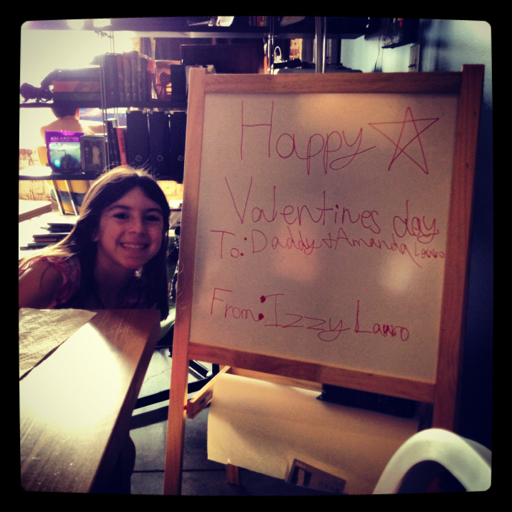 Happy
Valentines day
To: Daddy + Amanda Lauro
From: Izzy Lauro